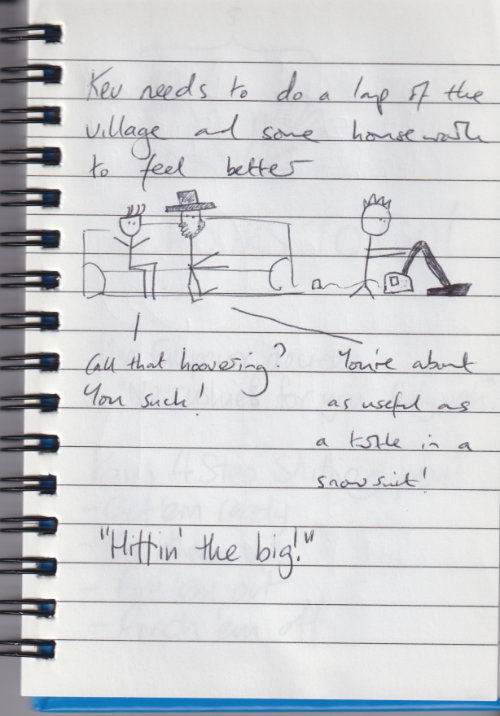 Kev needs to do a lap of the
village and some housework
to feel better
Call that hoovering?
You suck!
You're about
as useful as
a in a
snowsuit!
"Hittin' the big!"